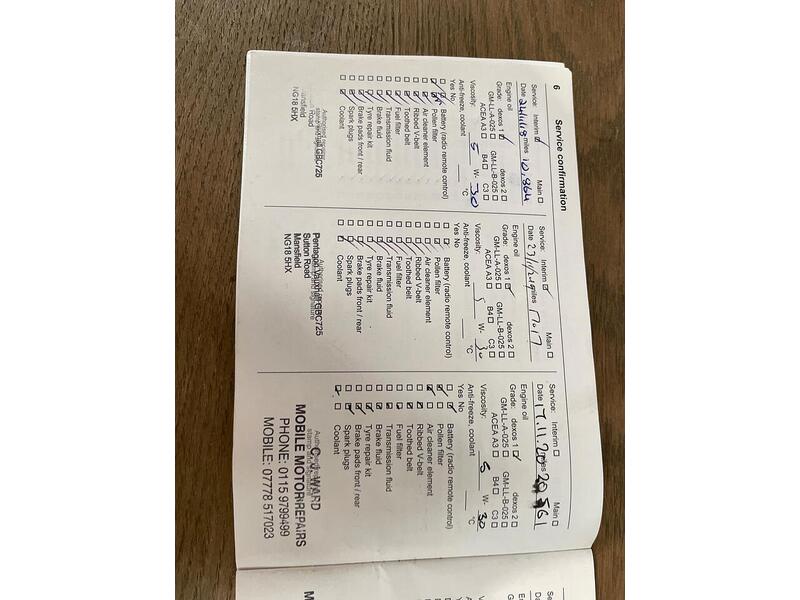 6 Service confirmation
Service: Interim Main
Date 24/11/18 miles 10,864
Engine oil
Grade: dexos 1 dexos 2
GM-LL-A-025 GM-LL-B-025
ACEA A3 B4 C3
Viscosity: 5 W- 30
Anti-freeze, coolant °C
Yes No
Battery (radio remote control)
Pollen filter
Air cleaner element
Ribbed V-belt
Toothed belt
Fuel filter
Transmission fluid
Brake fluid
Tyre repair kit
Brake pads front / rear
Spark plugs
Coolant
GBC725
Road
NG18 5HX
Service: Interim Main
Date miles 17017
Engine oil
Grade: dexos 1 dexos 2
GM-LL-A-025 GM-LL-B-025
ACEA A3 B4 C3
Viscosity: 5 W- 30
Anti-freeze, coolant °C
Yes No
Battery (radio remote control)
Pollen filter
Air cleaner element
Ribbed V-belt
Toothed belt
Fuel filter
Transmission fluid
Brake fluid
Tyre repair kit
Brake pads front / rear
Spark plugs
Coolant
Pentagon Vauxhall GBC725
Sutton Road
Mansfield
NG18 5HX
Service: Interim Main
Date 17.11.20
Engine oil
Grade: dexos 1 dexos 2
GM-LL-A-025 GM-LL-B-025
ACEA A3 B4 C3
Viscosity: 5 W- 30
Anti-freeze, coolant °C
Yes No
Battery (radio remote control)
Pollen filter
Air cleaner element
Ribbed V-belt
Toothed belt
Fuel filter
Transmission fluid
Brake fluid
Tyre repair kit
Brake pads front / rear
Spark plugs
Coolant
WARD
MOBILE MOTOR REPAIRS
PHONE: 0115 9799499
MOBILE: 07778 517023